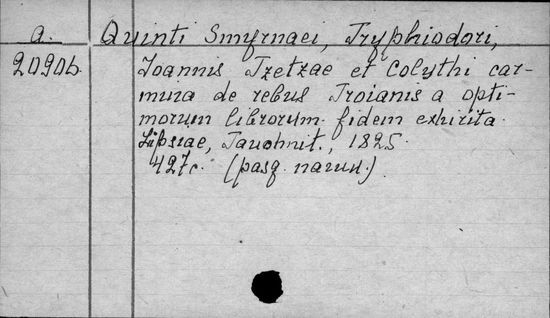 a. Quinti Smyrnaei, Tryphiodori,
20906. Joannis Tzetzae et Colythi car-
mina de rebus Troianis a opti-
morum librorum fidem exhirita.
Lipsiae, Tauchnit., 1825.
427c. (pasq. начин.)